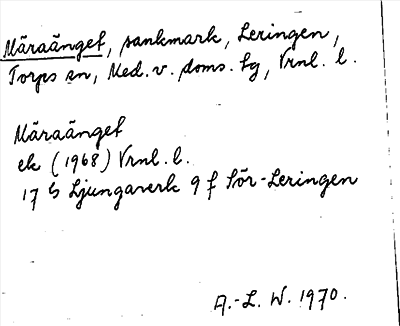 Märaänget, sankmark, Leringen,
Torps sn, Med. v. doms. tg, Vrnl. l.
Märaänget
ek (1968) Vrnl. l.
17 G Ljungaverk 9 f Sör-Leringen
A.-L. W. 1970.